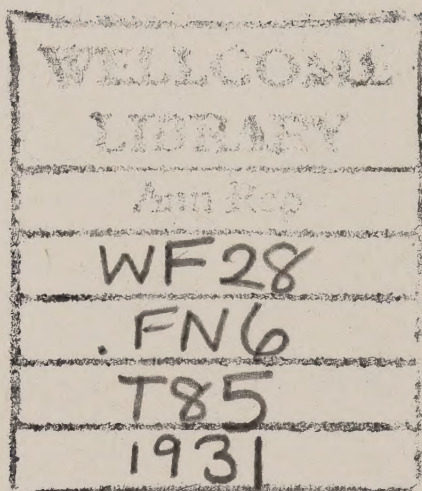 WELLCOME
LIBRARY
Ann Rep
WF28
.FN6
T85
1931